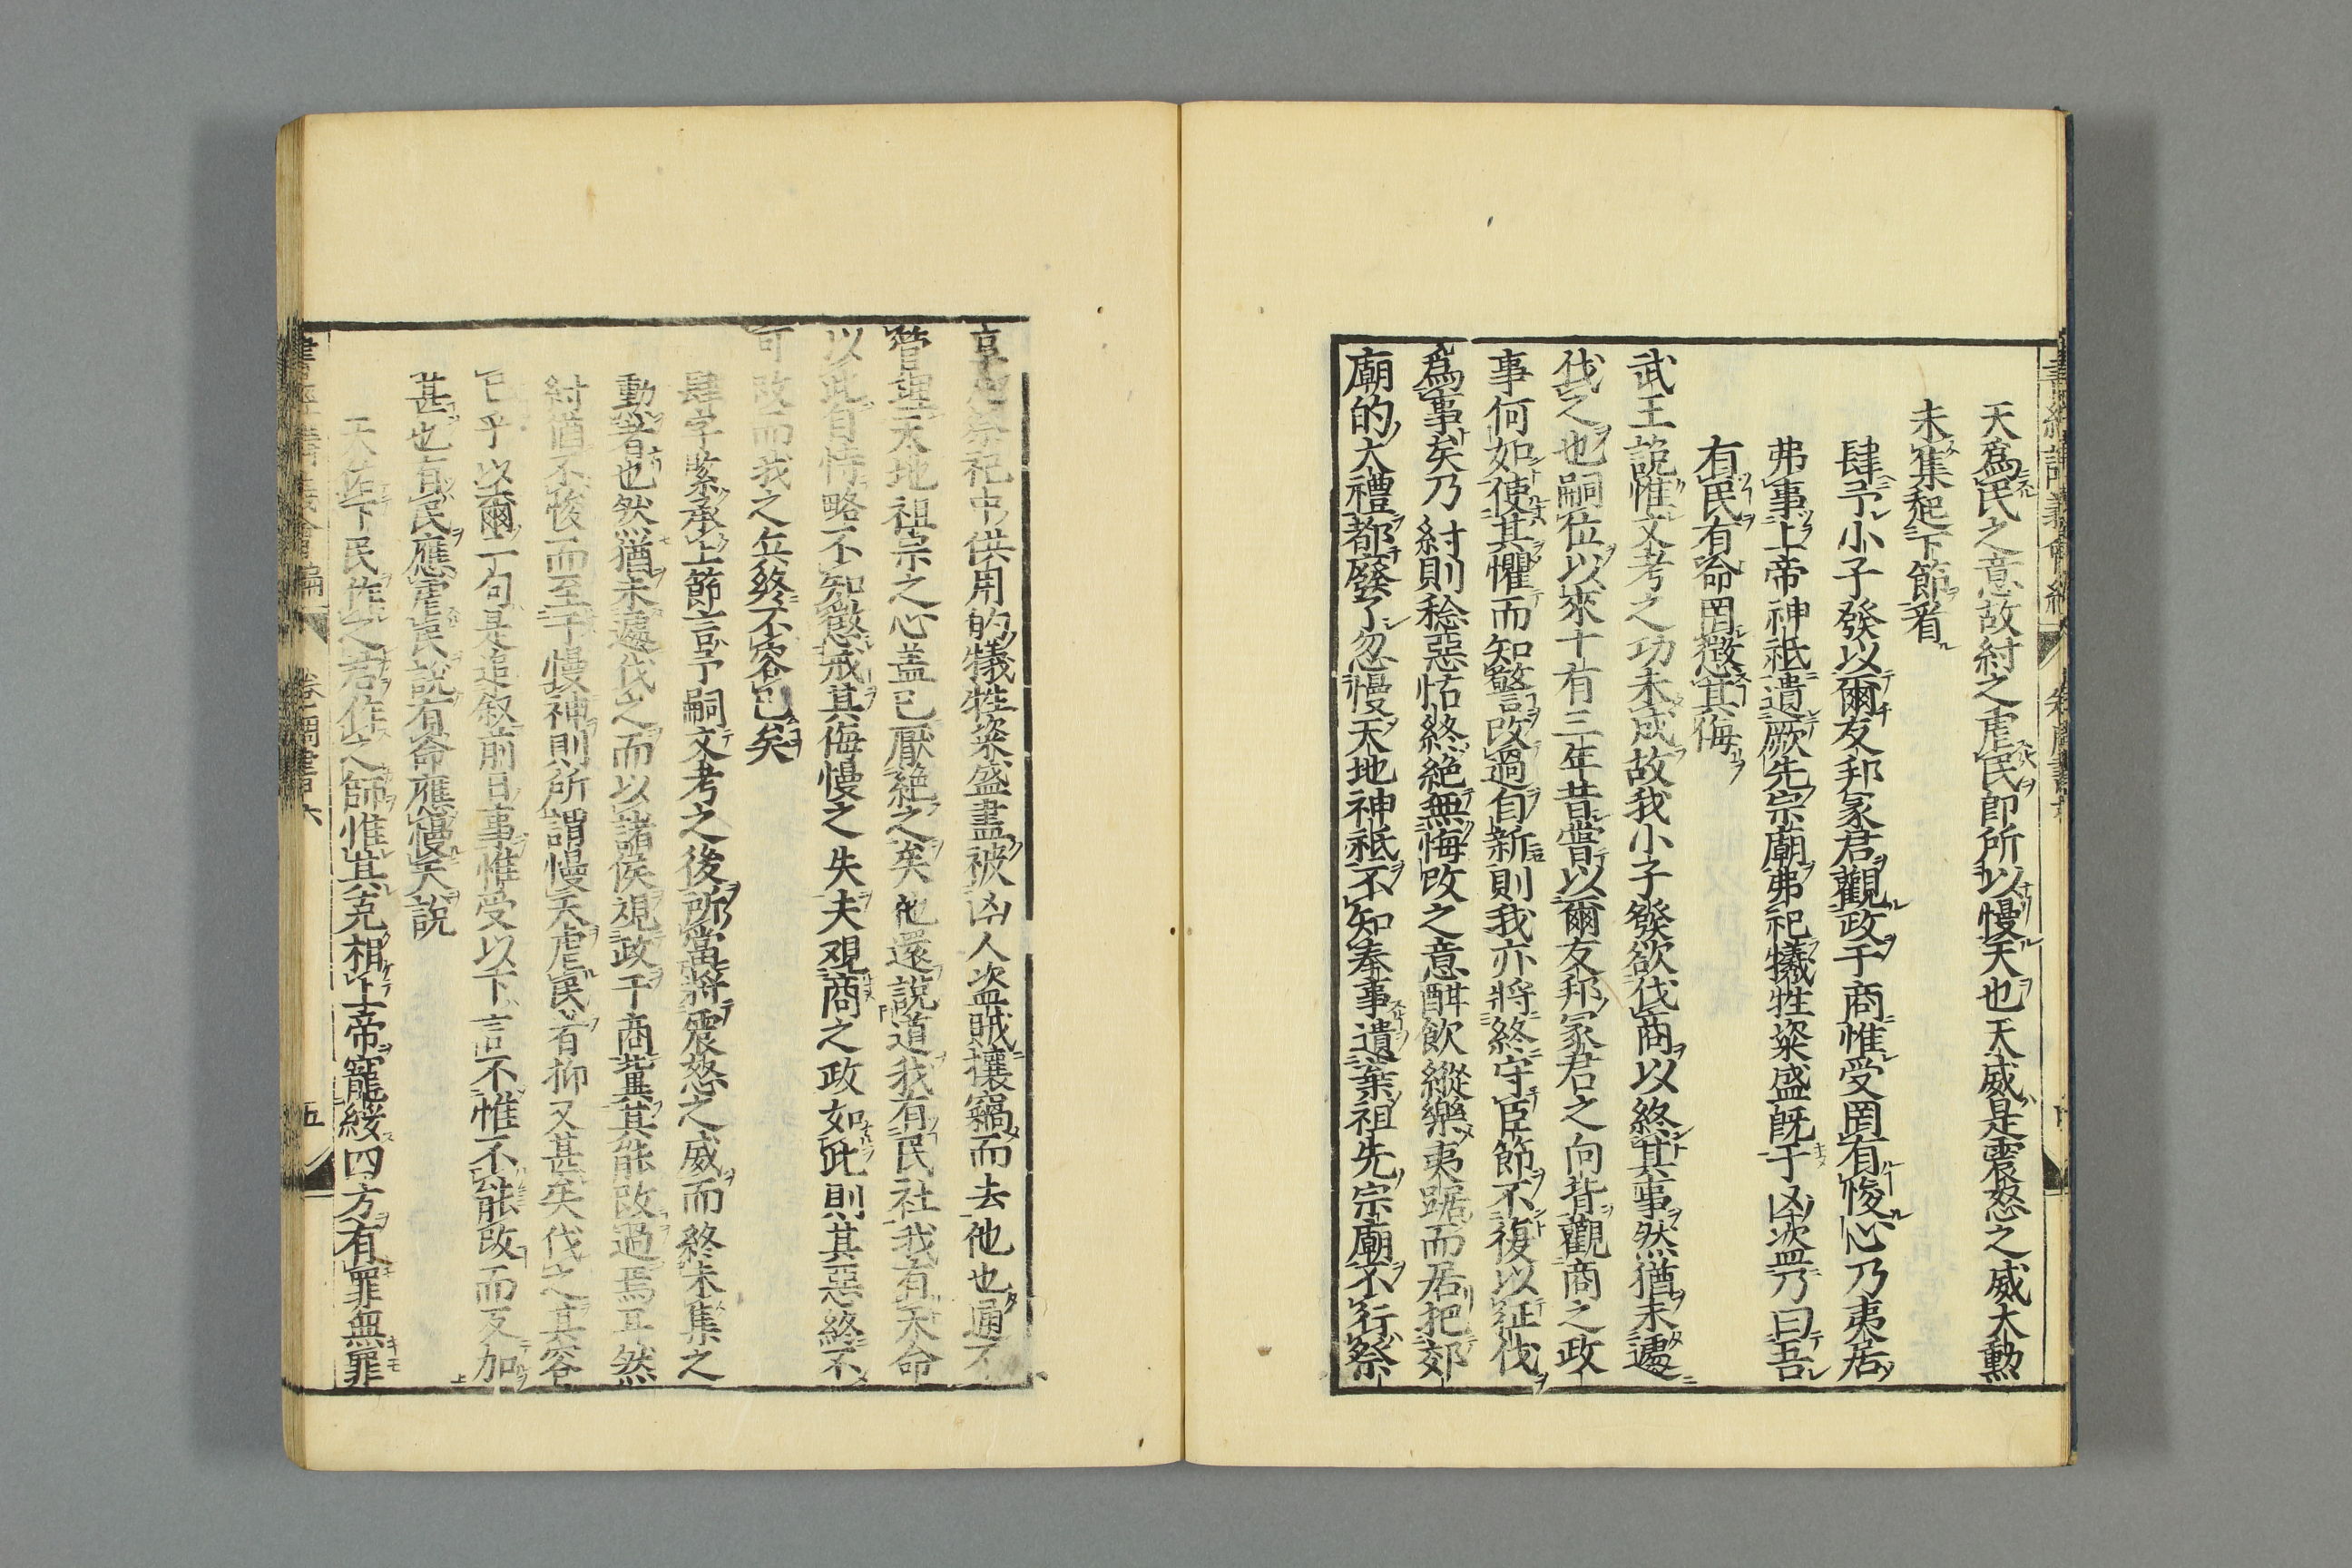 天爲民之意故紂之虐民卽所以慢天也天威是震怒之威大勲
未集起下節看
肆予小子發以爾友邦冢君觀政于商惟受罔有悛心乃夷居
弗事上帝神祇遺厥先宗廟弗祀犧牲粢盛旣于凶盜乃曰吾
有民有命罔懲其侮
武王說惟文考之功未成故我小子發欲伐商以終其事然猶未遽
伐之也嗣位以來十有三年昔嘗以爾友邦冢君之向背觀商之政
事何如使其懼而知警改過自新則我亦將終守臣節不復以征伐
爲事矣乃紂則稔惡怙終絶無悔改之意酣飲縱樂夷踞而居把郊
廟的大禮都廢了忽慢天地神祇不知奉事遺棄祖先宗廟不行祭
享祀中供用的犧牲粢盛盡被凶人盜賊攘竊而去他也通不
管理天地祖宗之心盖已厭絶之矣他還說道我有民社我有天命
以此自恃略不知懲戒其侮慢之失夫觀商之政如此則其惡終不
可改而我之兵終不容已矣
肆字緊承上節言予嗣文考之後所當將震怒之威而終未集之
動者也然猶未遽伐之而以諸侯覌政于商冀其能改過焉耳然
紂猶不悛而至于慢神則所謂慢天虐民者抑又甚矣伐之其容
已乎以爾一句是追叙前日事惟受以下言不惟不能改而又加
甚也有民應虐民說有命應慢天說
天佑下民作之君作之師惟其克相上帝寵綏四方有罪無罪
卷之 周書 六
五